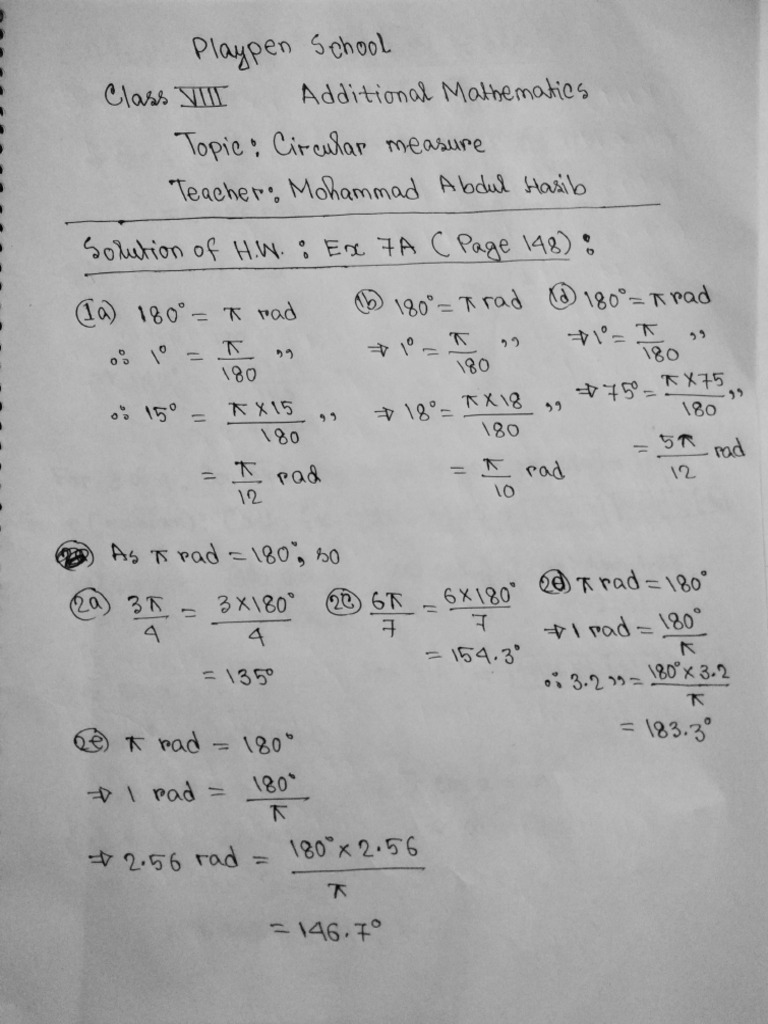 Playpen School
Class VIII Additional Mathematics
Topic: Circular measure
Teacher: Mohammad Abdul Hasib
Solution of H.W. : Ex 7A (Page 148) :
1a) 180° = π rad
∴ 1° = π/180 ,,
∴ 15° = π×15/180 ,,
= π/12 rad
1b) 180° = π rad
⇒ 1° = π/180 ,,
⇒ 18° = π×18/180 ,,
= π/10 rad
1d) 180° = π rad
⇒ 1° = π/180 ,,
⇒ 75° = π×75/180 ,,
= 5π/12 rad
As π rad = 180°, so
2a) 3π/4 = 3×180°/4
= 135°
2c) 6π/7 = 6×180°/7
= 154.3°
2d) π rad = 180°
⇒ 1 rad = 180°/π
∴ 3.2 ,, = 180°×3.2/π
= 183.3°
2e) π rad = 180°
⇒ 1 rad = 180°/π
⇒ 2.56 rad = 180°×2.56/π
= 146.7°